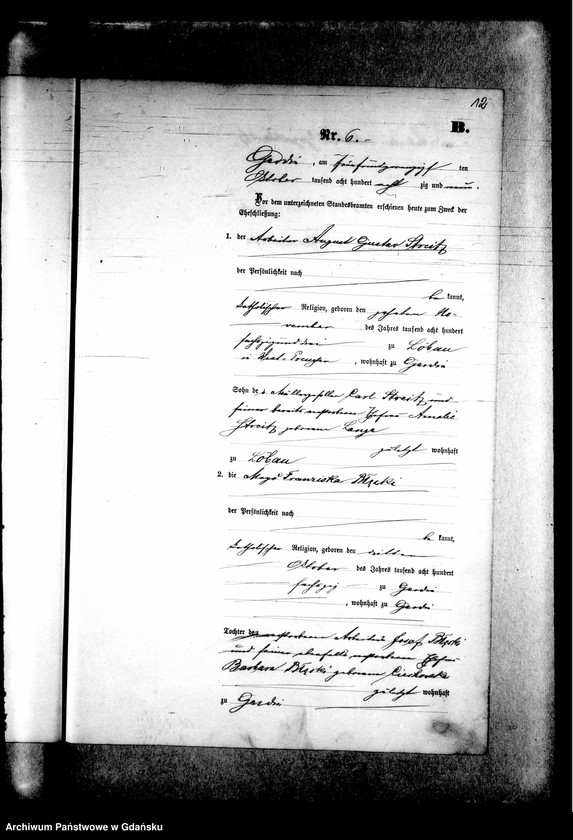 12
B.
Nr. 6.
Gardin, am fünfundzwanzigsten
Oktober tausend acht hundert acht zig und neun.
Vor dem unterzeichneten Standesbeamten erschienen heute zum Zweck der
Eheschließung:
1. der Arbeiter August Gustav Streitz
der Persönlichkeit nach
be kannt,
katholischer Religion, geboren den zehnten No-
vember des Jahres tausend acht hundert
sechzig und drei zu Löbau
in West-Preußen, wohnhaft zu Gardin
Sohn des Müllergesellen Carl Streitz und
seiner bereits verstorbenen Ehefrau Amalie
Streitz geborenen Lange
zuletzt wohnhaft
zu Löbau
2. die Magd Franziska
der Persönlichkeit nach
be kannt,
katholischer Religion, geboren den dritten
Oktober des Jahres tausend acht hundert
sechzig zu Gardin
, wohnhaft zu Gardin
Tochter des verstorbenen Arbeiters Josef
und seiner ebenfalls verstorbenen Ehefrau
Barbara geborenen
zuletzt wohnhaft
zu Gardin
Archiwum Państwowe w Gdańsku